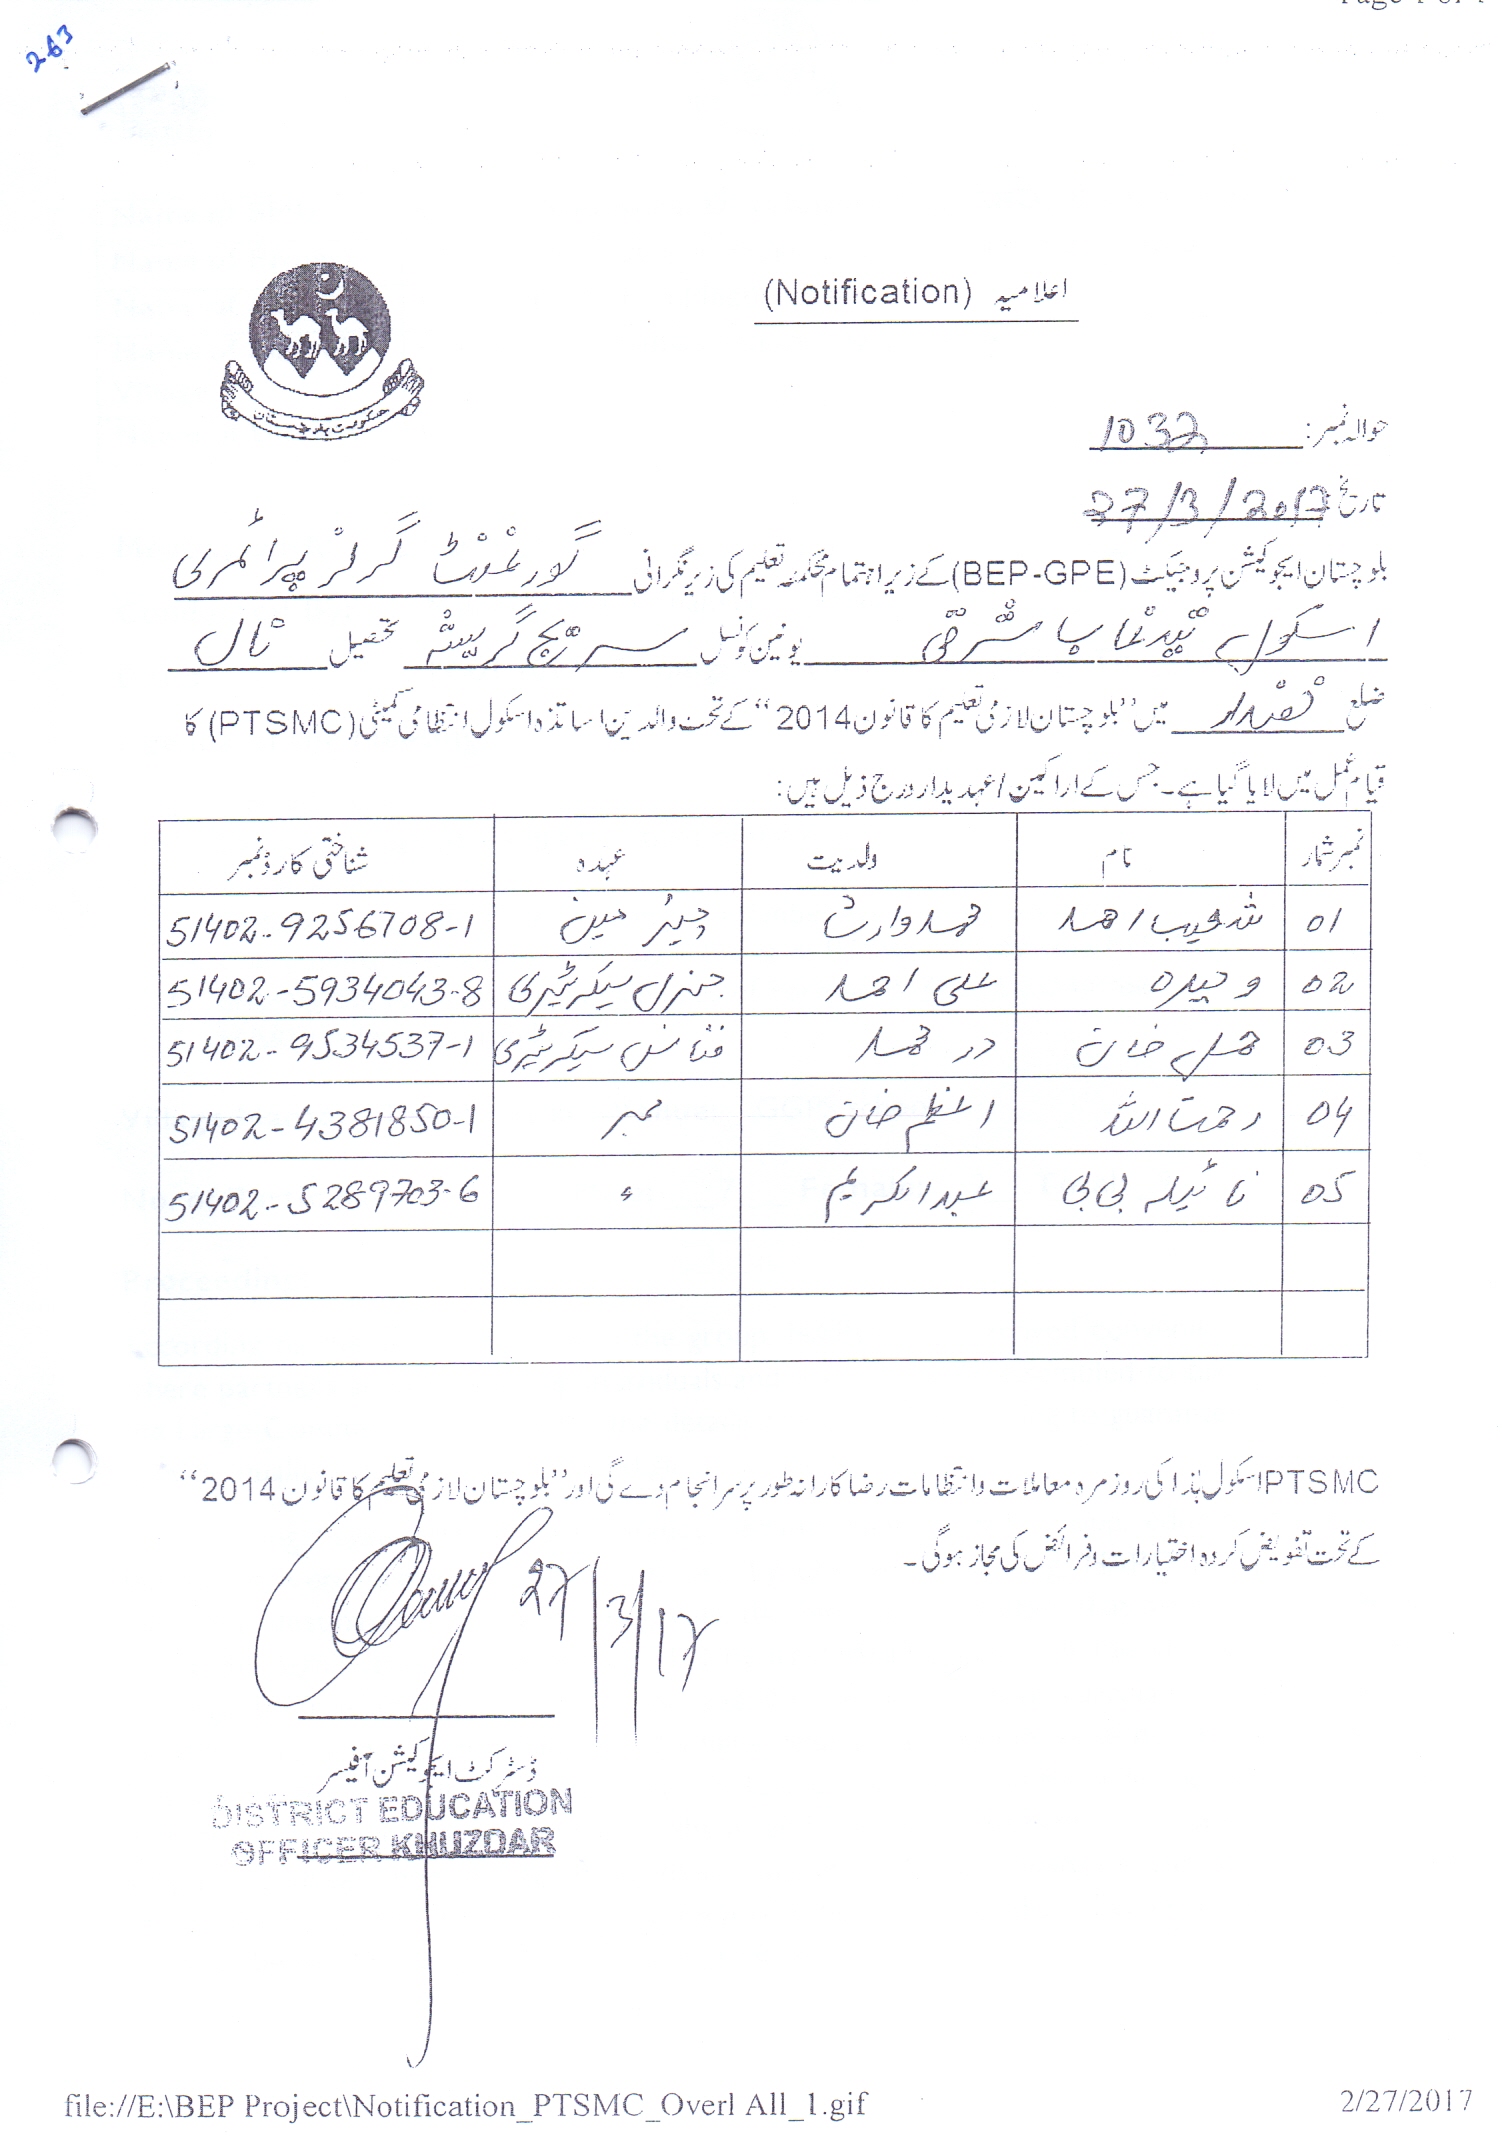 Page 1 of 1
263
اعلامیہ (Notification)
حکومت بلوچستان
حوالہ نمبر: 1032
تاریخ 27/3/2017
بلوچستان ایجوکیشن پروجیکٹ (BEP-GPE) کے زیر اہتمام محکمہ تعلیم کی زیر نگرانی گورنمنٹ گرلز پرائمری
اسکول شرقی یونین کونسل گریشہ تحصیل نال
ضلع خضدار میں "بلوچستان لازمی تعلیم کا قانون 2014" کے تحت والدین اساتذہ اسکول انتظامی کمیٹی (PTSMC) کا
قیام عمل میں لایا گیا ہے۔ جس کے اراکین / عہدیدار درج ذیل ہیں:
نمبر شمار نام ولدیت عہدہ شناختی کارڈ نمبر
01 شعیب احمد محمد وارث چیئرمین 51402-9256708-1
02 وحیدہ علی احمد جنرل سیکرٹیری 51402-5934043-8
03 خان در محمد فنانس سیکرٹیری 51402-9534537-1
04 رحمت اللہ اعظم خان ممبر 51402-4381850-1
05 نائیلہ بی بی عبدالکریم 〃 51402-5289703-6
PTSMC اسکول ہذا کی روز مرہ معاملات و انتظامات رضا کارانہ طور پر سرانجام دے گی اور "بلوچستان لازمی تعلیم کا قانون 2014"
کے تحت تفویض کردہ اختیارات و فرائض کی مجاز ہوگی۔
27/3/17
ڈسٹرکٹ ایجوکیشن آفیسر
DISTRICT EDUCATION
OFFICER KHUZDAR
file://E:\BEP Project\Notification_PTSMC_Overl All_1.gif 2/27/2017